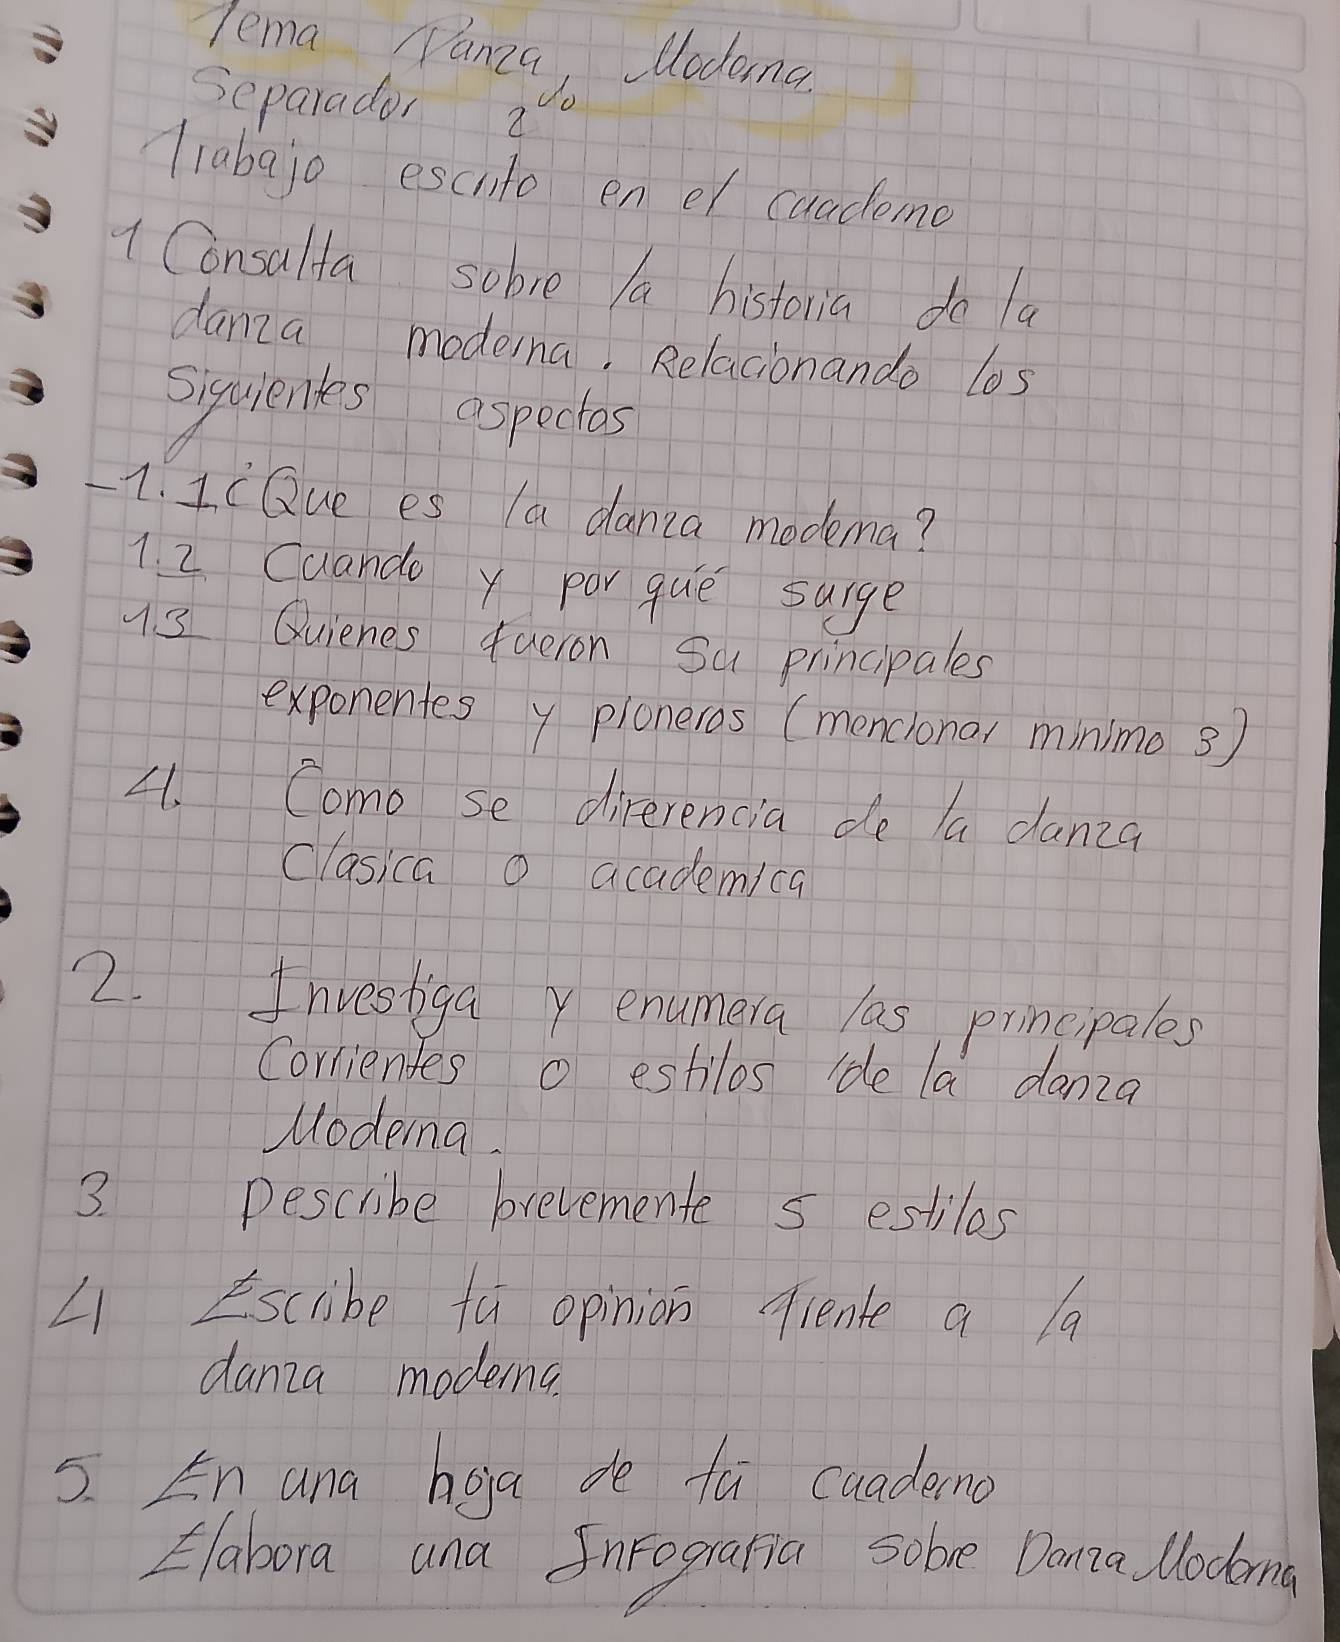 Tema Danza, Moderna.
Separador 2do
Trabajo escrito en el cuaderno
1 Consulta sobre la historia de la
danza moderna. Relacionando los
siguientes aspectos
-1.1 ¿Que es la danza moderna?
1.2 Cuando y por qué surge
1.3 Quienes fueron su principales
exponentes y pioneros (mencionar minimo 3)
4. Como se diferencia de la danza
Clasica o academica
2. Investiga y enumera las principales
Corrientes o estilos de la danza
Moderna.
3. Describe brevemente 5 estilos
4 Escribe tú opinión frente a la
danza moderna.
5. En una hoja de tú cuaderno
Elabora una Infografia sobre Danza Moderna